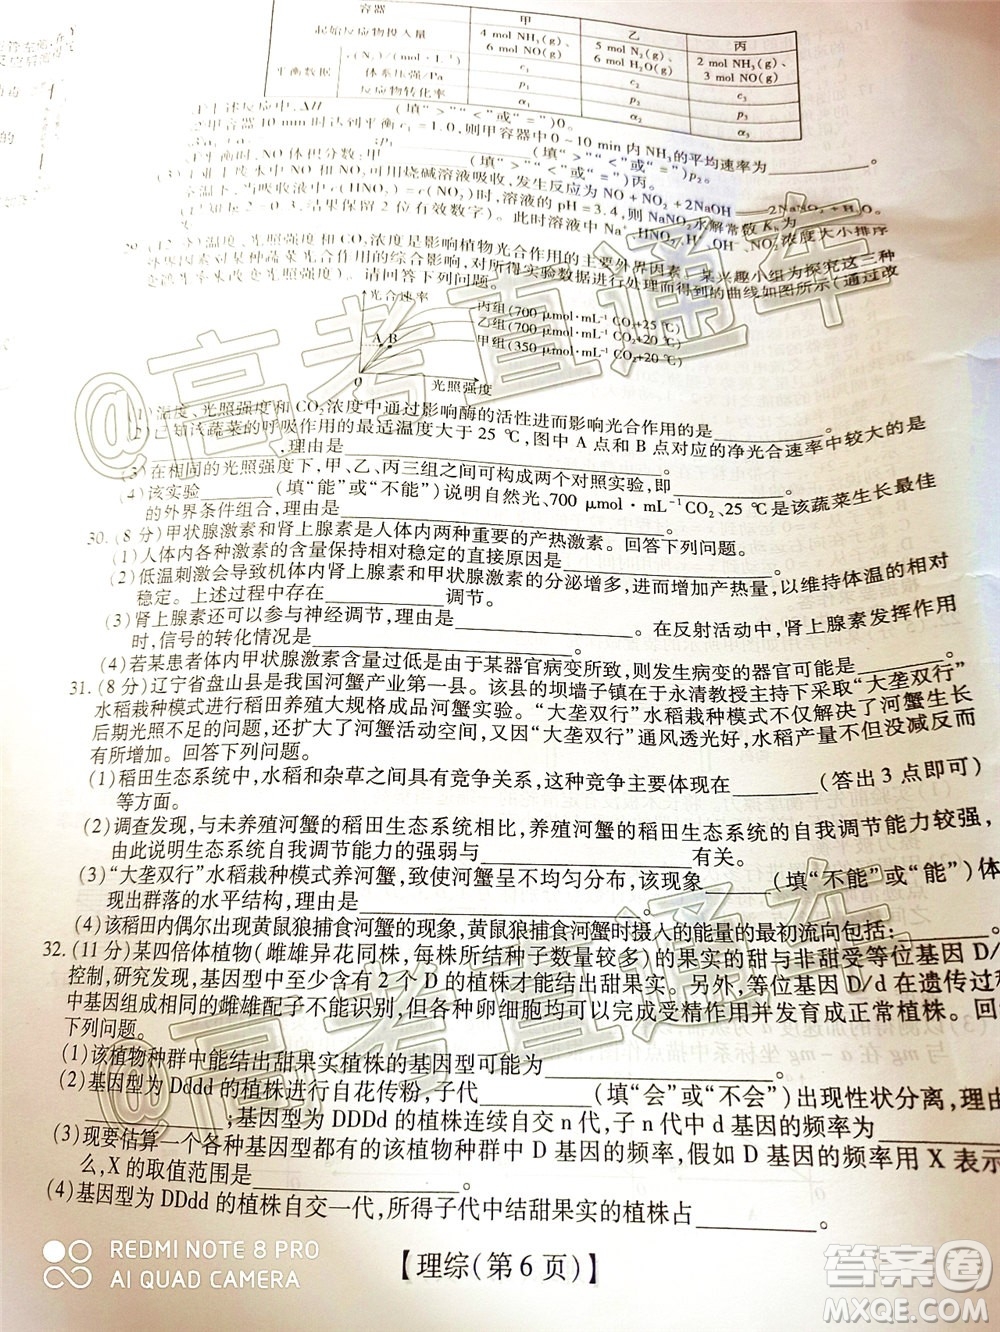 容器
甲
乙
丙
起始反应物投入量
4 mol NH₃(g)、
6 mol NO(g)
5 mol N₂(g)、
6 mol H₂O(g)
2 mol NH₃(g)、
3 mol NO(g)
平衡数据
c(N₂)/(mol·L⁻¹)
c₁
c₂
c₃
体系压强/Pa
p₁
p₂
p₃
反应物转化率
α₁
α₂
α₃
上述反应中,ΔH______(填“>”“<”或“=”)0。
甲容器 10 min 时达到平衡 c₁=1.0,则甲容器中 0~10 min 内 NH₃的平均速率为______。
平衡时, NO 体积分数:甲______(填“>”“<”或“=”)丙。
(12 分)温度、光照强度和 CO₂浓度是影响植物光合作用的主要外界因素,某兴趣小组为探究这三种
外界因素对某种蔬菜光合作用的综合影响,对所得实验数据进行处理而得到的曲线如图所示(通过改
变光源来改变光照强度)。请回答下列问题。
光合速率
丙组(700 μmol·mL⁻¹ CO₂+25 ℃)
乙组(700 μmol·mL⁻¹ CO₂+20 ℃)
甲组(350 μmol·mL⁻¹ CO₂+20 ℃)
A B
0
光照强度
(1)温度、光照强度和 CO₂浓度中通过影响酶的活性进而影响光合作用的是______。
(2)已知该蔬菜的呼吸作用的最适温度大于 25 ℃,图中 A 点和 B 点对应的净光合速率中较大的是
______,理由是______。
(3)在相同的光照强度下,甲、乙、丙三组之间可构成两个对照实验,即______。
(4)该实验______(填“能”或“不能”)说明自然光、700 μmol·mL⁻¹CO₂、25 ℃是该蔬菜生长最佳
的外界条件组合,理由是______。
30. (8 分)甲状腺激素和肾上腺素是人体内两种重要的产热激素。回答下列问题。
(1)人体内各种激素的含量保持相对稳定的直接原因是______。
(2)低温刺激会导致机体内肾上腺素和甲状腺激素的分泌增多,进而增加产热量,以维持体温的相对
稳定。上述过程中存在______调节。
(3)肾上腺素还可以参与神经调节,理由是______。在反射活动中,肾上腺素发挥作用
时,信号的转化情况是______。
(4)若某患者体内甲状腺激素含量过低是由于某器官病变所致,则发生病变的器官可能是______。
31. (8 分)辽宁省盘山县是我国河蟹产业第一县。该县的坝墙子镇在于永清教授主持下采取“大垄双行”
水稻栽种模式进行稻田养殖大规格成品河蟹实验。“大垄双行”水稻栽种模式不仅解决了河蟹生长
后期光照不足的问题,还扩大了河蟹活动空间,又因“大垄双行”通风透光好,水稻产量不但没减反而
有所增加。回答下列问题。
(1)稻田生态系统中,水稻和杂草之间具有竞争关系,这种竞争主要体现在______(答出 3 点即可)
等方面。
(2)调查发现,与未养殖河蟹的稻田生态系统相比,养殖河蟹的稻田生态系统的自我调节能力较强,
由此说明生态系统自我调节能力的强弱与______有关。
(3)“大垄双行”水稻栽种模式养河蟹,致使河蟹呈不均匀分布,该现象______(填“不能”或“能”)体
现出群落的水平结构,理由是______。
(4)该稻田内偶尔出现黄鼠狼捕食河蟹的现象,黄鼠狼捕食河蟹时摄入的能量的最初流向包括:______。
32. (11 分)某四倍体植物(雌雄异花同株,每株所结种子数量较多)的果实的甜与非甜受等位基因 D/
控制,研究发现,基因型中至少含有 2 个 D 的植株才能结出甜果实。另外,等位基因 D/d 在遗传过程
中基因组成相同的雌雄配子不能识别,但各种卵细胞均可以完成受精作用并发育成正常植株。回
下列问题。
(1)该植物种群中能结出甜果实植株的基因型可能为______。
(2)基因型为 Dddd 的植株进行自花传粉,子代______(填“会”或“不会”)出现性状分离,理由
______;基因型为 DDDd 的植株连续自交 n 代,子 n 代中 d 基因的频率为______
(3)现要估算一个各种基因型都有的该植物种群中 D 基因的频率,假如 D 基因的频率用 X 表示
么,X 的取值范围是______。
(4)基因型为 DDdd 的植株自交一代,所得子代中结甜果实的植株占______。
【理综(第 6 页)】
@高考直通车
@高考直通车
REDMI NOTE 8 PRO
AI QUAD CAMERA
答案圈
MXQE.COM